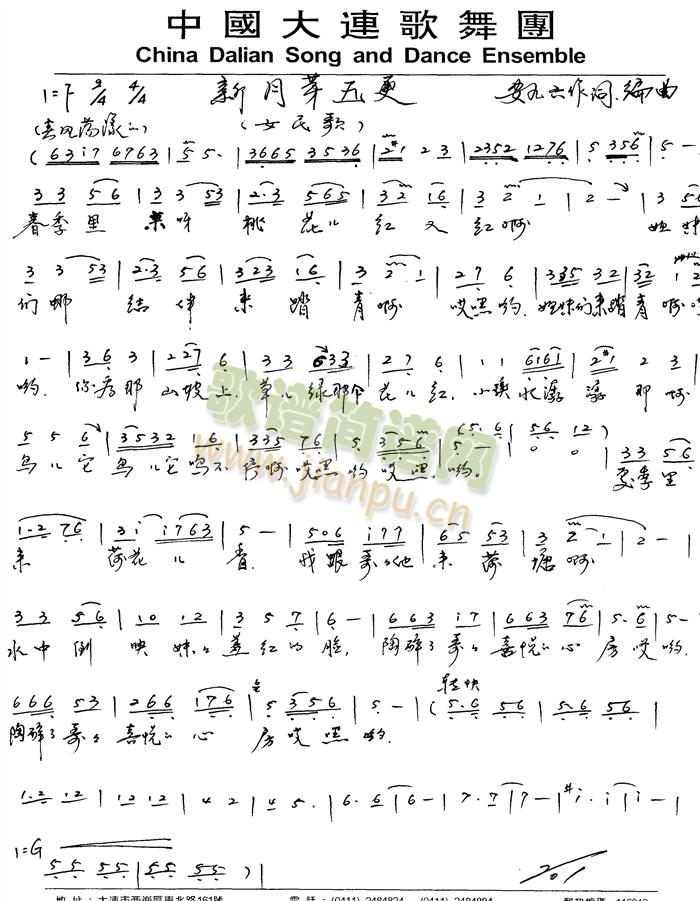 中國大連歌舞團
China Dalian Song and Dance Ensemble
1=F 2/4 4/4 新月芽五更 作词.编曲
(春风荡漾) (女民歌)
(6 3 i 7 6 7 6 3 | 5 5· | 3 6 6 5 3 5 3 6 | 2 1 2 3 | 2 3 5 2 1 2 7 6 | 5 3 5 6 | 5 -
3 3 5 6 | 3 3 5 3 | 2·3 5 6 5 | 3 2 1 6 | 3 2 1 | 2 - | 3 5 6
春季里 来呀 桃花儿红又红啊 姐妹
3 3 5 3 | 2·3 5 6 | 3 2 3 1 6 | 3 2·1 | 2 7 6 | 3 3 5 3 2 | 3 2 1 2
们哪 结伴来踏青啊 哎嘿哟.姐妹们来踏青啊
1 - | 3 6 3 | 2 2 7 6 | 3 3 6 3 3 | 2 7 6 | 1 1 6 1 6 1 | 2 1 2 3
哟. 你看那山坡上.草儿绿那个花儿红.小溪水潺潺那啊
5 5 6 | 3 5 3 2 1 6 | 3 3 5 7 6 | 5 3 5 6 | 5 - | 3 3 5 6
鸟儿它鸟儿它鸣不停啊哎嘿哟哎嘿.哟. 夏季里
1·2 7 6 | 3 i i 7 6 3 | 5 - | 5 0 6 i 7 7 | 6 5 5 3 | 3 2 1 | 2 - |
来 荷花儿香. 我跟哥哥他来荷塘啊
3 3 5 6 | 1 0 1 2 | 3 5 7 | 6 - | 6 6 3 1 7 | 6 6 3 7 6 | 5·6 | 5 -
水中倒映妹妹羞红的脸. 陶醉了哥哥喜悦的心房哎哟.
6 6 6 5 3 | 2 6 6 1 7 6 | 5 3 5 6 | 5 - | (轻快 5·6 5 6 | 5·6 5 6 |
陶醉了哥哥喜悦的心房哎嘿哟.
1·2 1 2 | 1 2 1 2 | 4 2 | 4 5· | 6·6 | 6 - | 7·7 | 7 - | #i·i | i - |
1=G 5 5 5 5 | 5 5 5 5 ) |
歌谱简谱网
www.jianpu.cn
地 址：大連市西崗區東北路161號 電 話：(0411) 2484824 (0411) 2484884